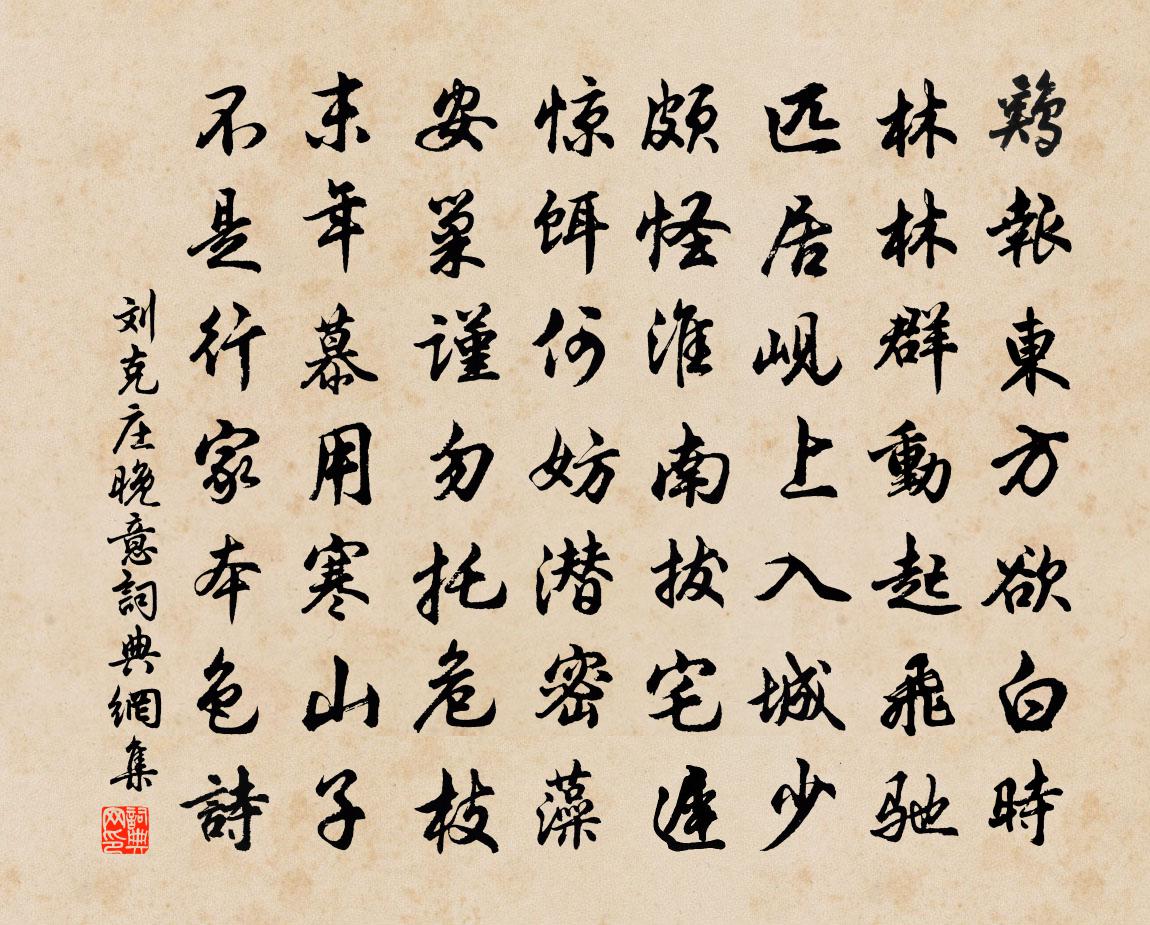 鷄報東方欲白時
林林群動起飛馳
匹居峴上入城少
頗怪淮南拔宅遲
惊餌何妨潜密藻
安巢谨勿托危枝
末年慕用寒山子
不是行家本色詩
刘克庄晚意詞典網集
詞典网印